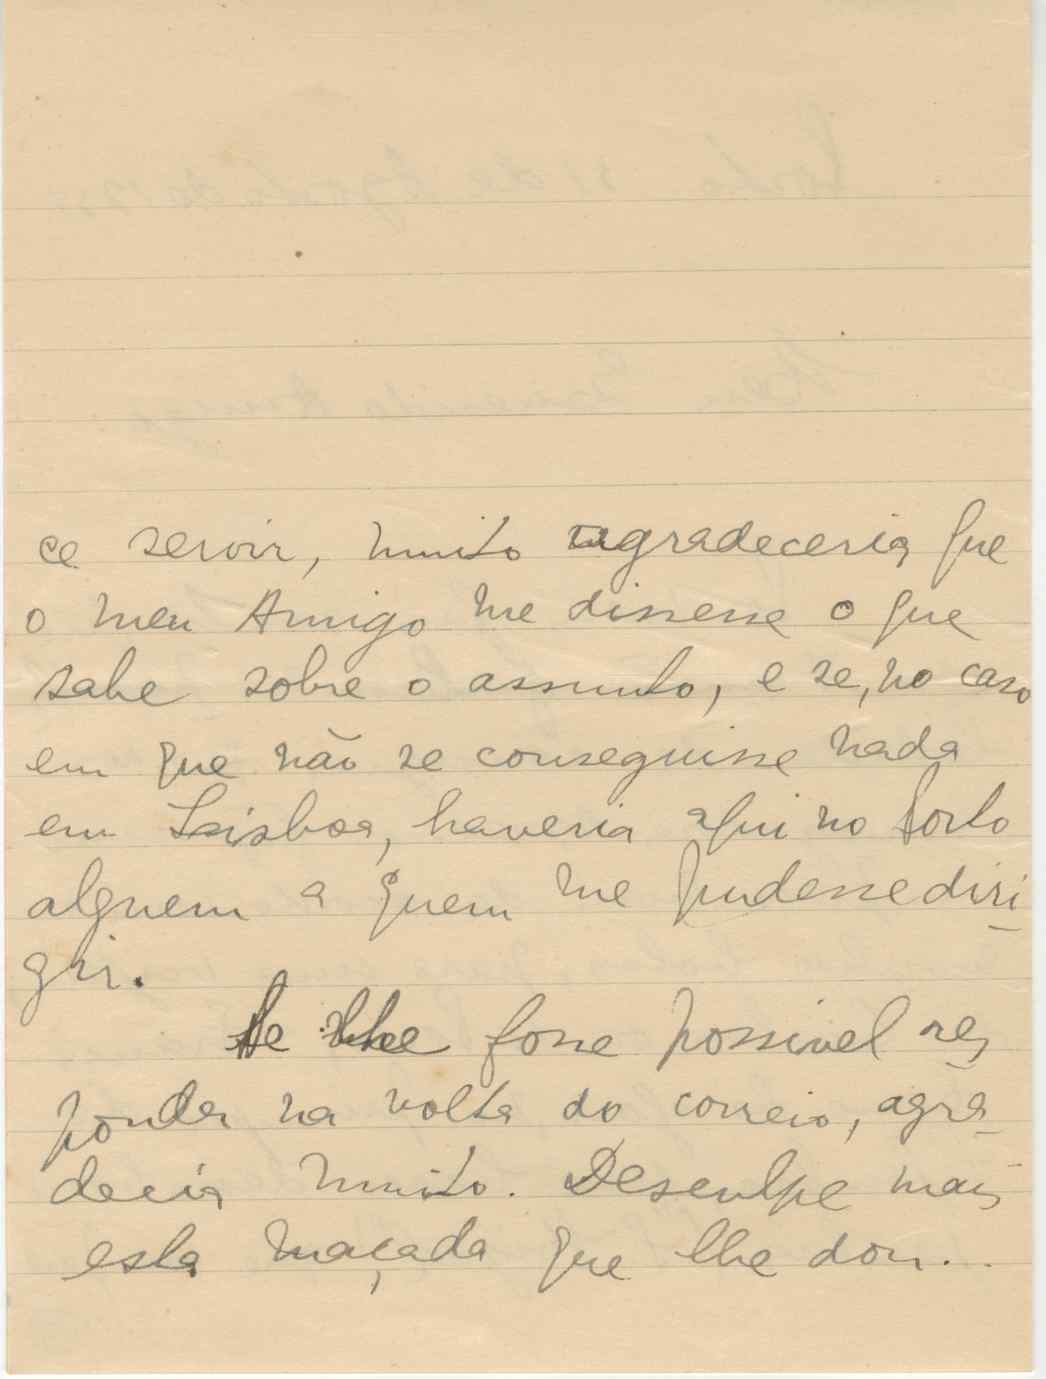 ce servir, muito agradeceria que
o meu Amigo me dissesse o que
sabe sobre o assunto, e se, no caso
em que não se conseguisse nada
em Lisboa, haveria aqui no Porto
alguem a quem me pudesse diri-
gir.
Se lhe fosse possivel res-
ponder na volta do correio, agra-
decia muito. Desculpe mais
esta maçada que lhe dou...